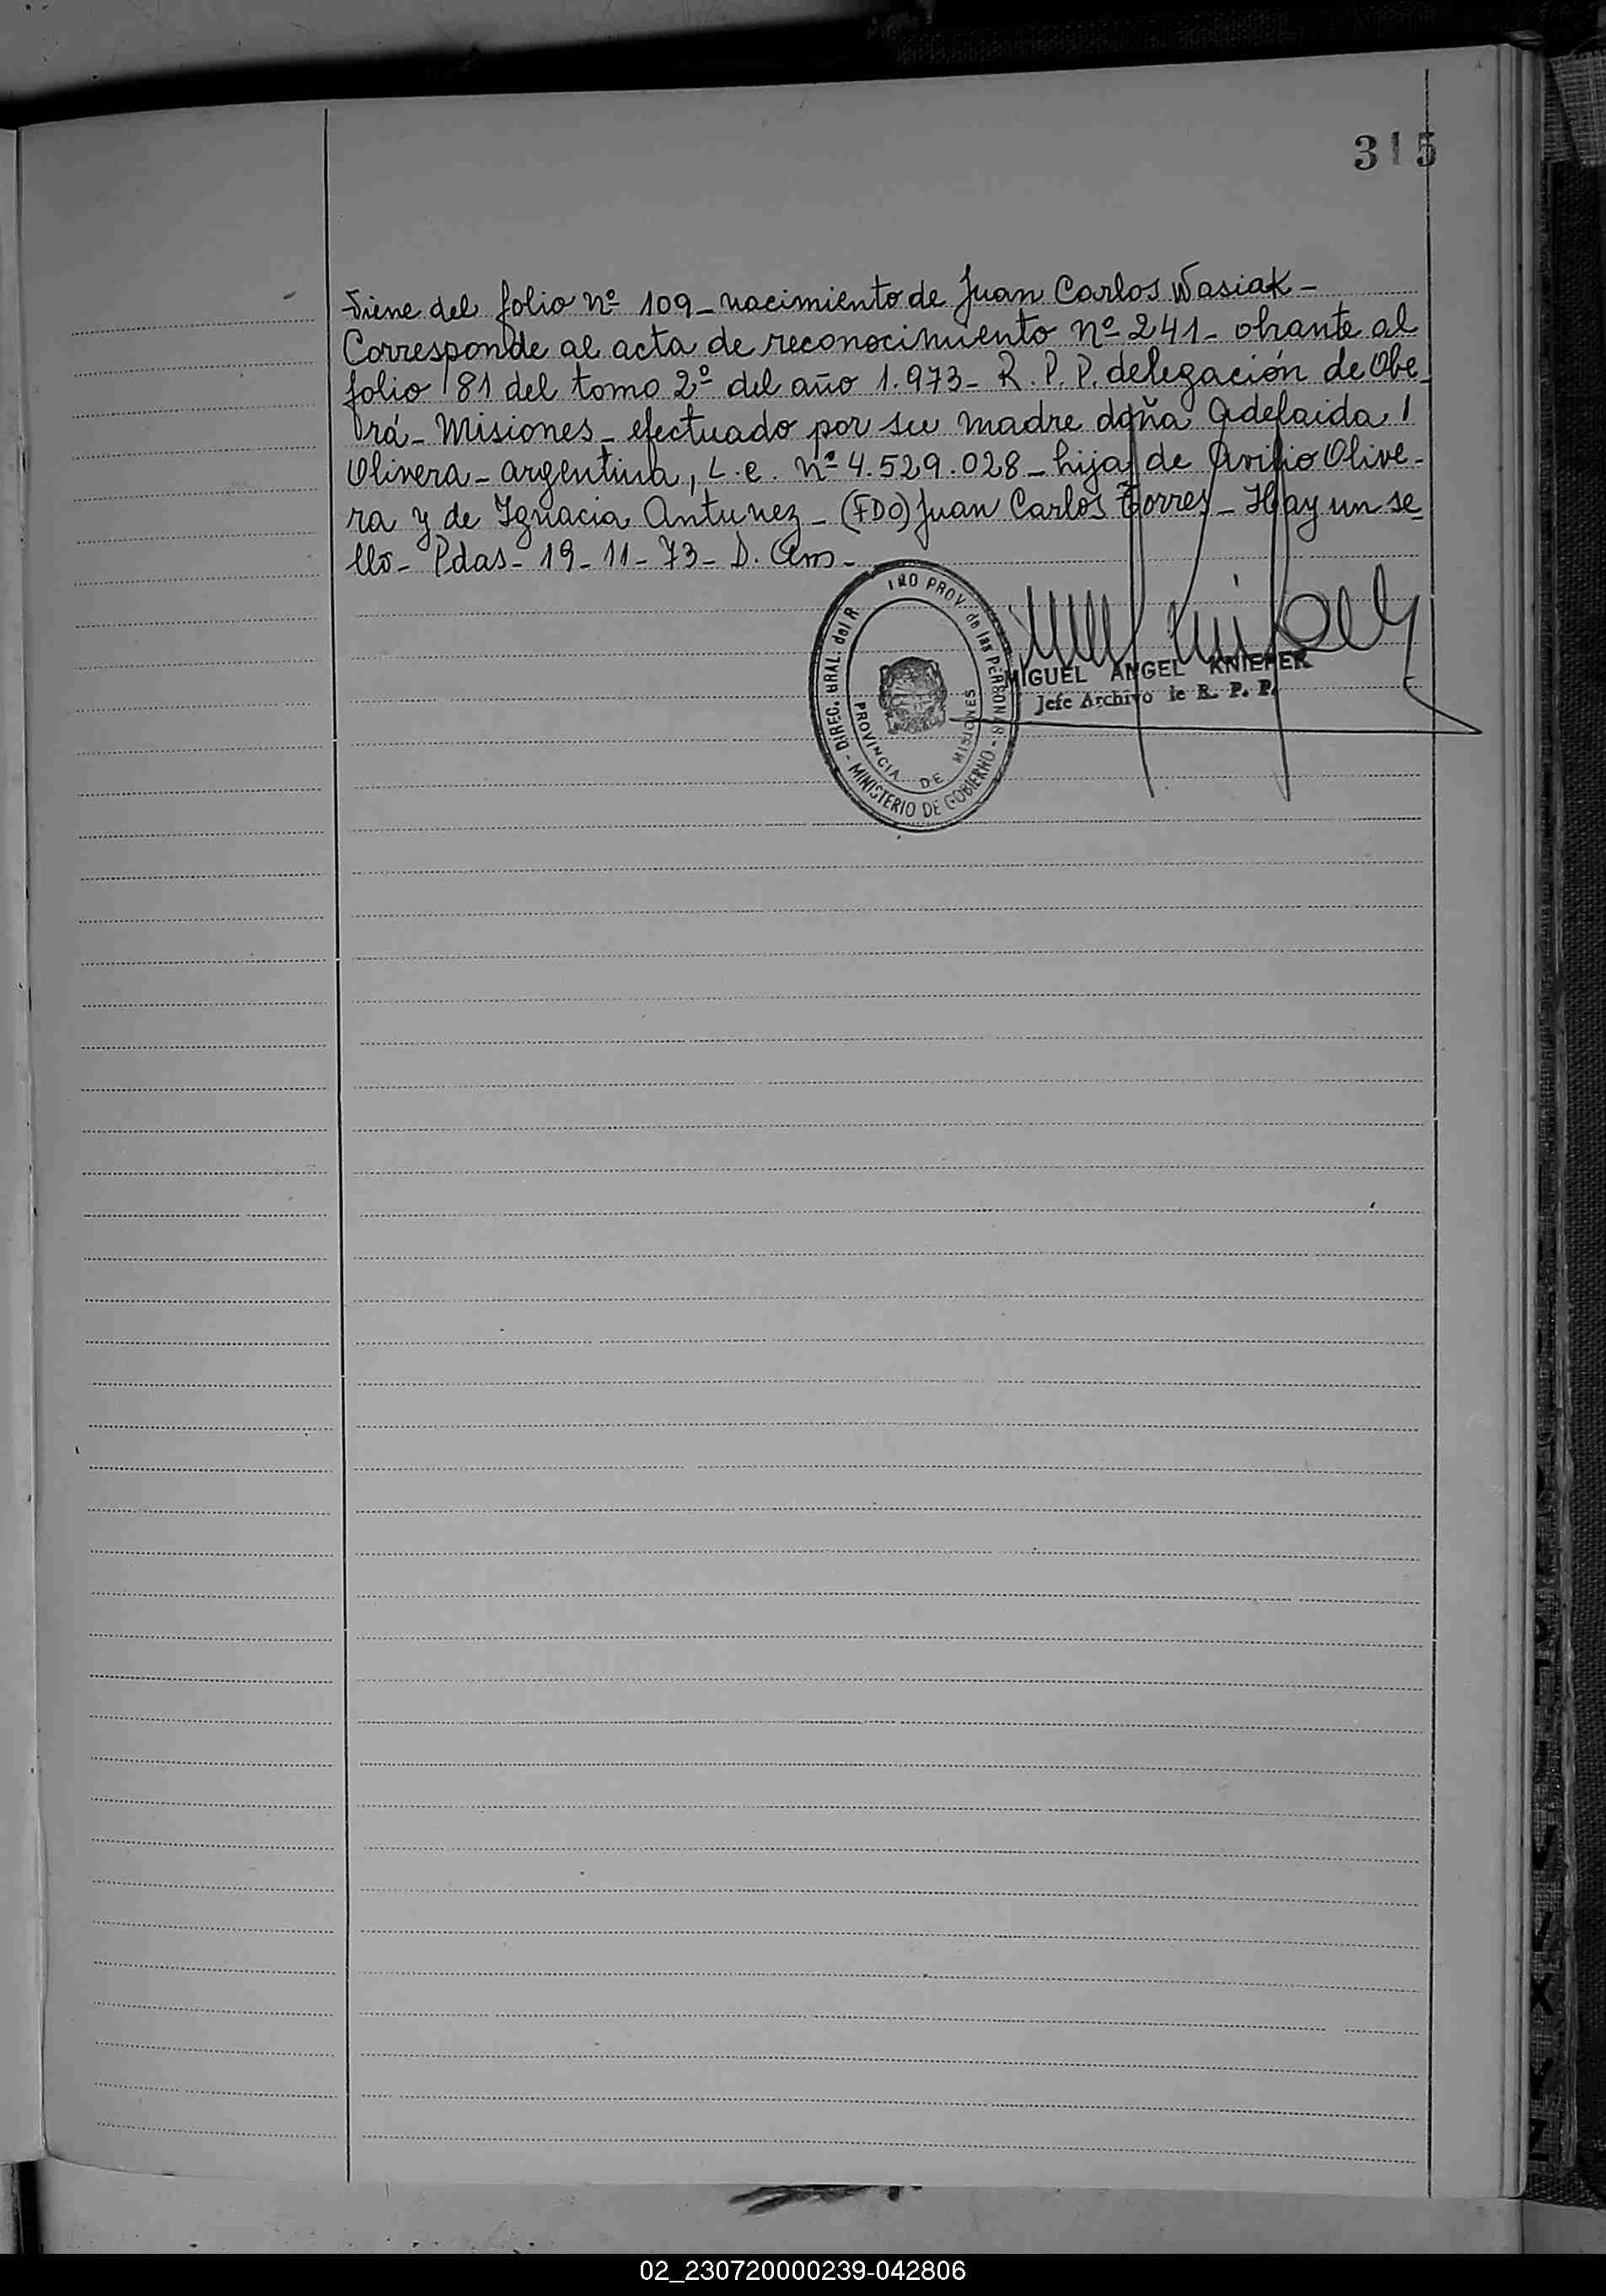 315
Viene del folio nº 109 - nacimiento de Juan Carlos Wasiak -
Corresponde al acta de reconocimiento nº 241 - obrante al
folio 81 del tomo 2º del año 1.973 - R. P. P. delegación de Obe-
rá - Misiones - efectuado por su madre doña Adelaida
Olivera - argentina, L.e. nº 4.529.028 - hija de Avilio Olive-
ra y de Ignacia Antunez - (FDO) Juan Carlos Torres - Hay un se-
llo - Pdas - 19 - 11 - 73 - D.
DIREC. GRAL. del R PROV. de las PERSONAS - MINISTERIO DE GOBIERNO -
PROVINCIA DE MISIONES
MIGUEL ANGEL KNIEPER
Jefe Archivo de R. P. P.
02_230720000239-042806